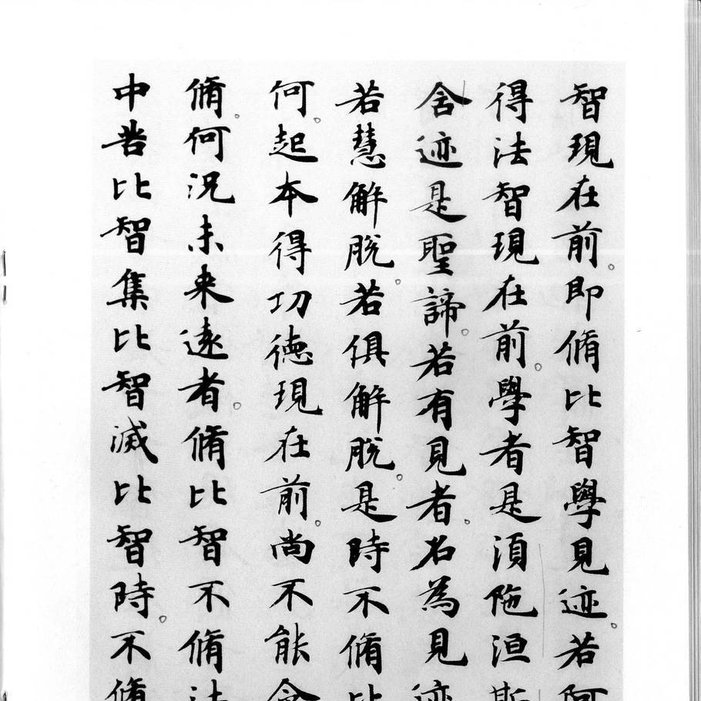 智現在前即脩比智學見迹若阿
得法智現在前學者是須陁洹斯
舍迹是聖諦若有見者名為見迹
若慧解脫若俱解脫是時不脩比
何起本得功德現在前尚不能令
脩何況未来遠者脩比智不脩法
中苦比智集比智滅比智時不脩